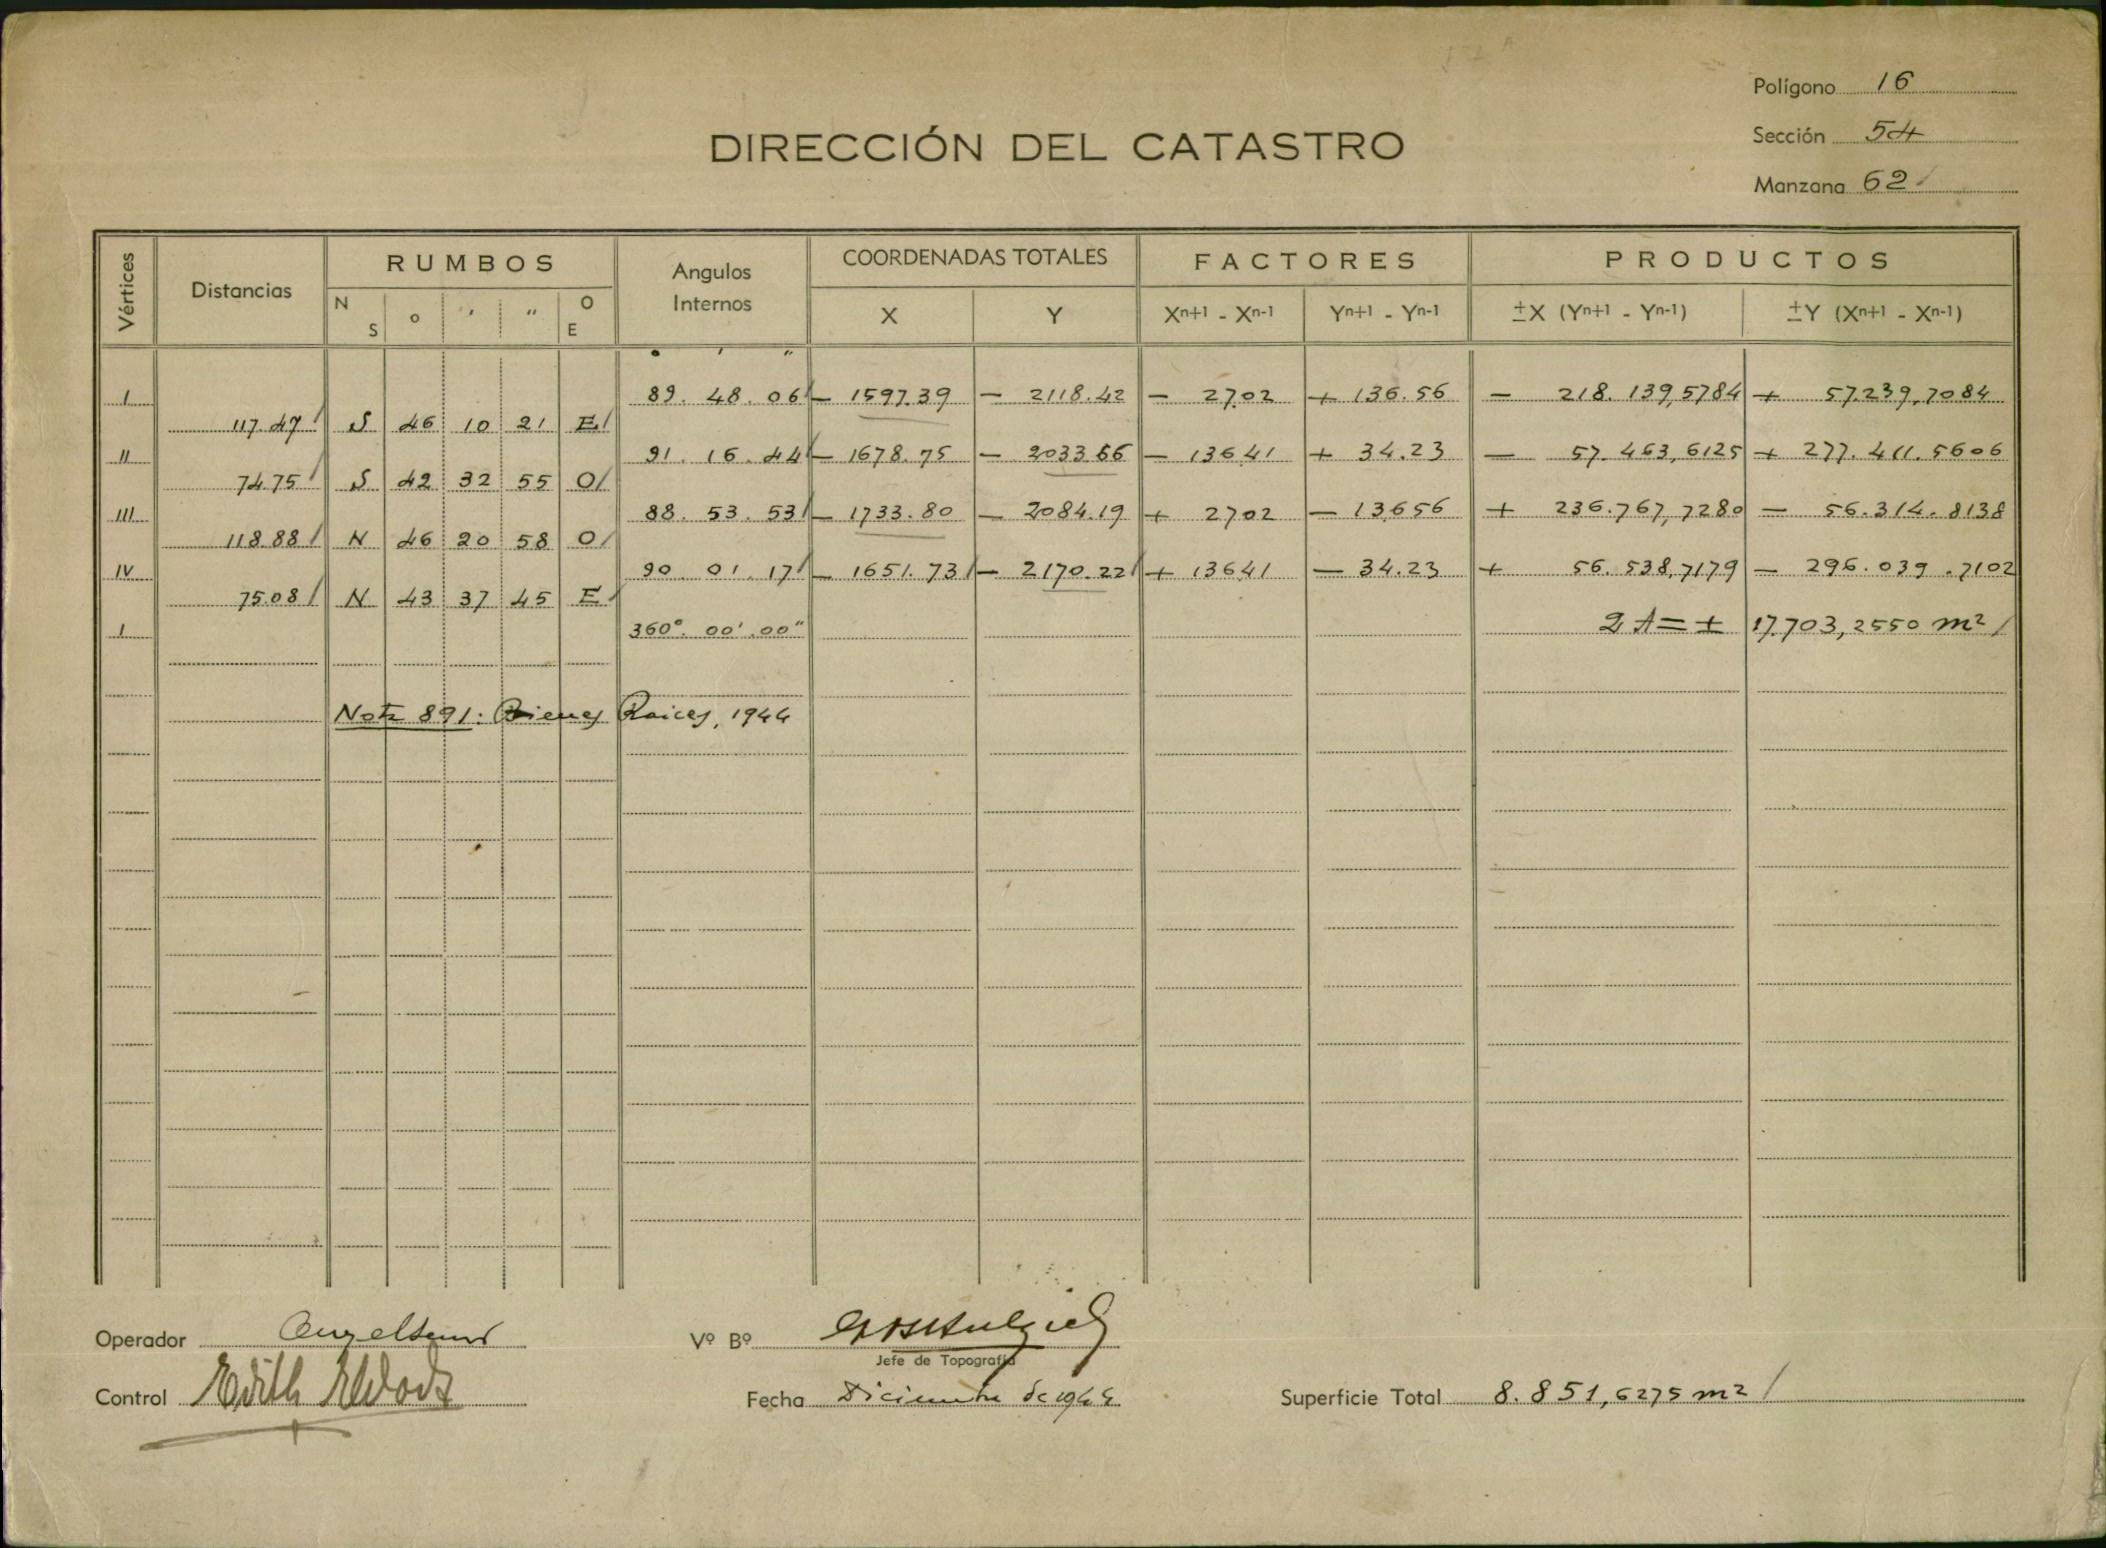 Polígono 16
DIRECCIÓN DEL CATASTRO
Sección 54
Manzana 62
Vértices Distancias RUMBOS Angulos Internos COORDENADAS TOTALES FACTORES PRODUCTOS
N S o ′ ″ O E X Y Xn+1 - Xn-1 Yn+1 - Yn-1 ±X (Yn+1 - Yn-1) ±Y (Xn+1 - Xn-1)
° ′ ″
I 89. 48. 06 — 1597.39 — 2118.42 — 27.02 + 136.56 — 218.139,5784 + 57.239,7084
117.47 S 46 10 21 E
II 91. 16. 44 — 1678.75 — 2033.66 — 136.41 + 34.23 — 57.463,6125 + 277.411.5606
74.75 S 42 32 55 O
III 88. 53. 53 — 1733.80 — 2084.19 + 27.02 — 136.56 + 236.767,7280 — 56.314.8138
118.88 N 46 20 58 O
IV 90. 01. 17 — 1651.73 — 2170.22 + 136.41 — 34.23 + 56.538,7179 — 296.039.7102
75.08 N 43 37 45 E
I 360°. 00'. 00" 2A = ± 17.703,2550 m²
Nota 891: Bienes Raices, 1944
Operador
Vº Bº
Jefe de Topografía
Control Edith
Fecha Diciembre de 1944
Superficie Total 8.851,6275 m²